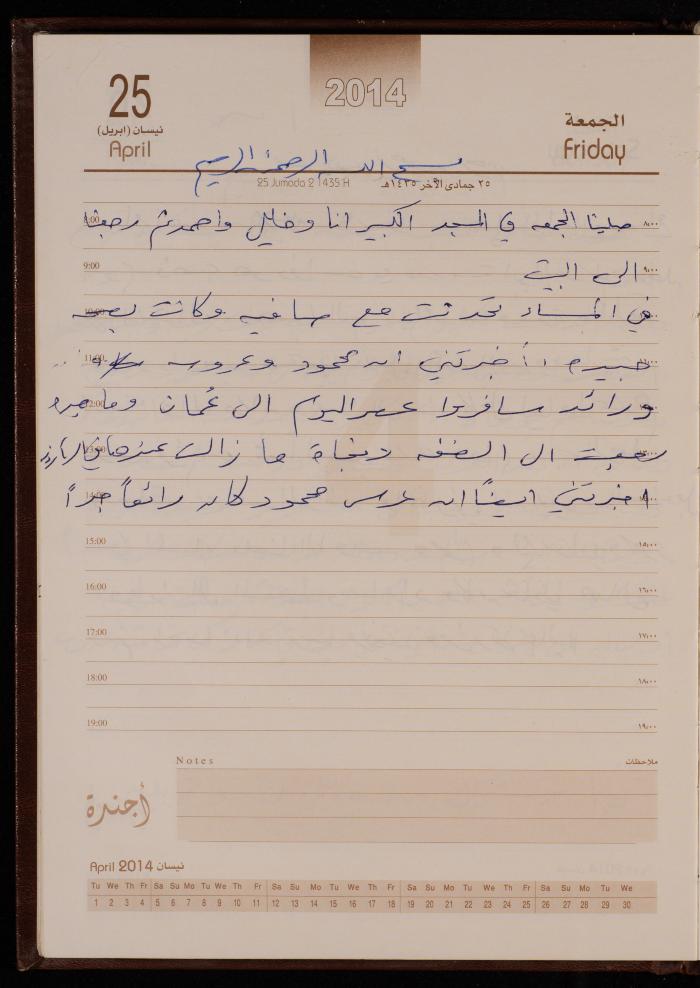 2014
25
نيسان (ابريل)
April
الجمعة
Friday
بسم الله الرحمن الرحيم
25 Jumada 2 1435 H
٢٥ جمادى الآخر ١٤٣٥هـ
8:00 صلينا الجمعه في المسجد الكبير انا وخليل واحمد ثم رجعنا ٨:٠٠
9:00 الى البيت ٩:٠٠
10:00 في المساء تحدثت مع صافيه وكانت بصحه
11:00 جيده، أخبرتني ان محمود وعروسه
12:00 ورائد سافروا عصر اليوم الى عُمان
13:00 الى الضفه ما زالت
14:00 اخبرتني ايضاً ان عرس محمود كان رائعاً جداً
15:00 ١٥:٠٠
16:00 ١٦:٠٠
17:00 ١٧:٠٠
18:00 ١٨:٠٠
19:00 ١٩:٠٠
Notes ملاحظات
أجندة
April 2014 نيسان
Tu We Th Fr Sa Su Mo Tu We Th Fr Sa Su Mo Tu We Th Fr Sa Su Mo Tu We Th Fr Sa Su Mo Tu We
1 2 3 4 5 6 7 8 9 10 11 12 13 14 15 16 17 18 19 20 21 22 23 24 25 26 27 28 29 30